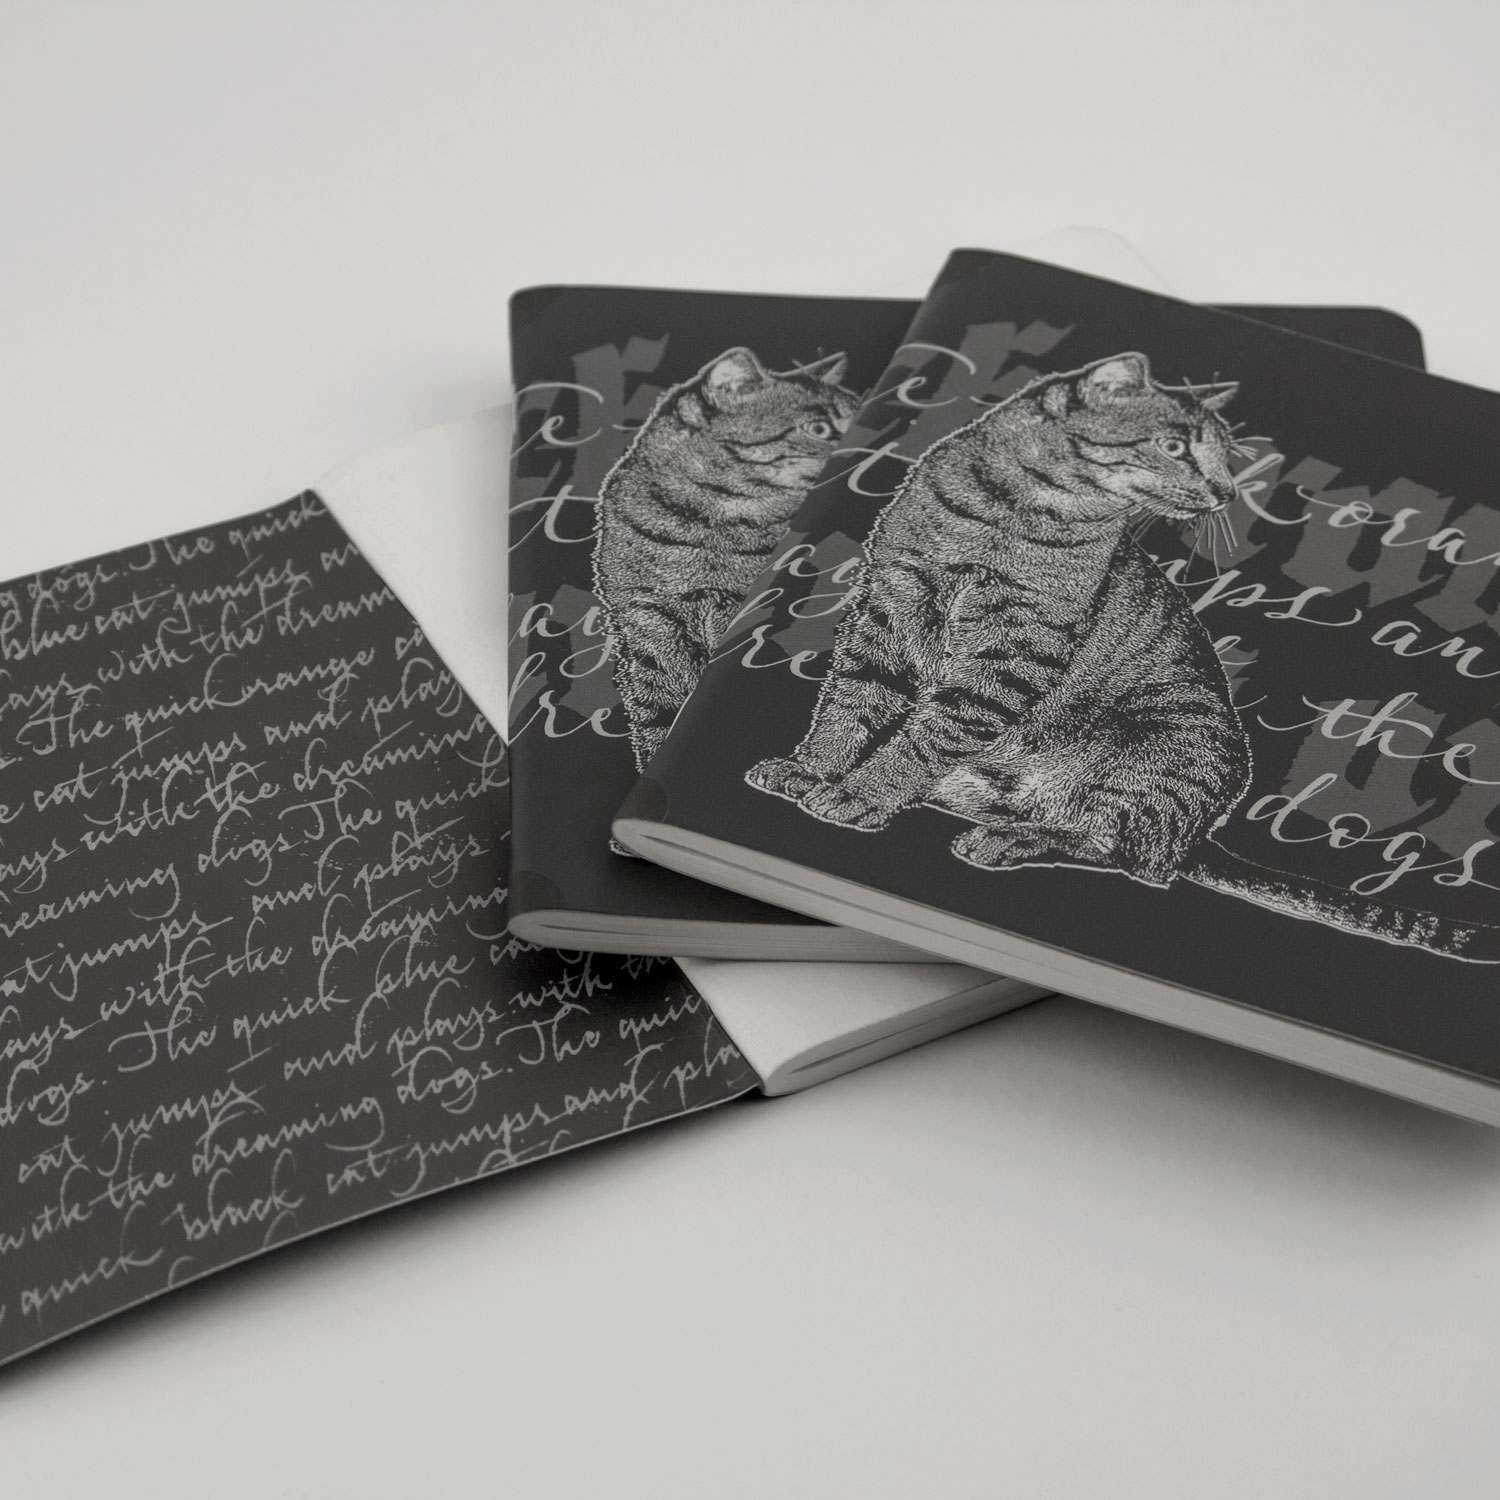 g dogs. The quick
blue cat jumps an
lays with the dream
. The quick orange ca
e cat jumps and play
ays with the dreaming
reaming dogs. The quick
at jumps and plays
lays with the dreaming
dogs. The quick blue cat
cat jumps and plays with th
with the dreaming dogs. The quic
quick black cat jumps and pla
e
t
ay
dre
e k oran
t mps an
ay the
dre dogs